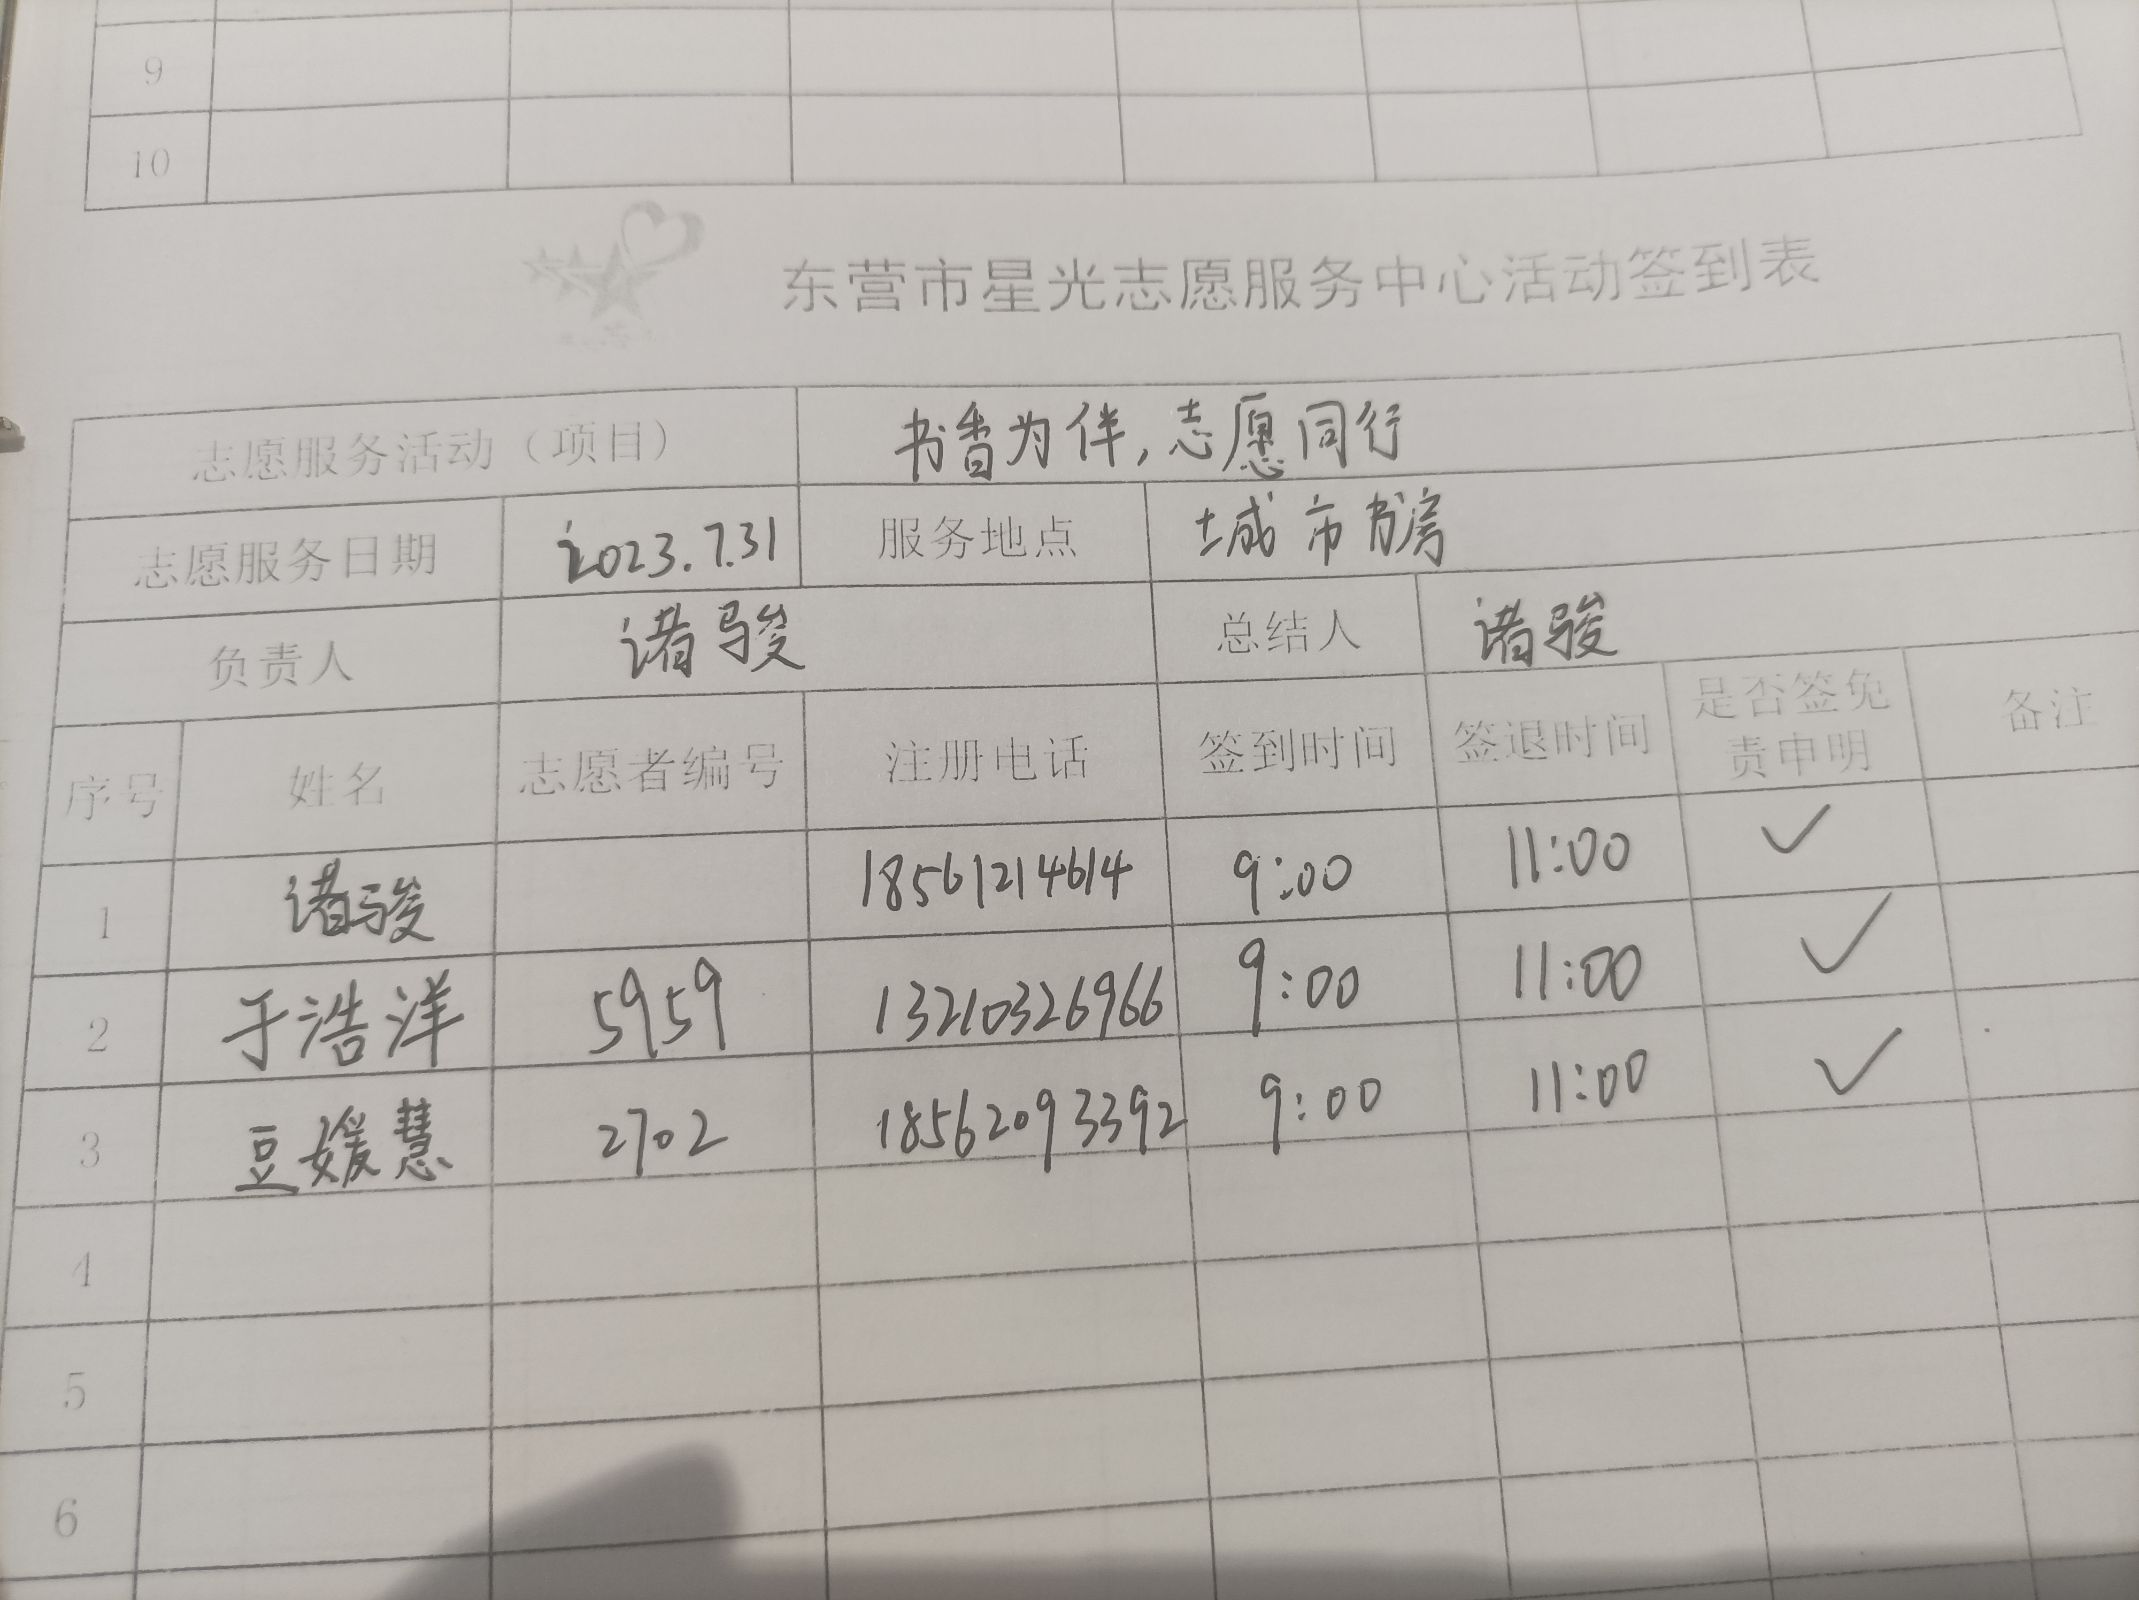 9
10
东营市星光志愿服务中心活动签到表
志愿服务活动（项目） 书香为伴，志愿同行
志愿服务日期 2023.7.31 服务地点 城市书房
负责人 诸骏 总结人 诸骏
序号 姓名 志愿者编号 注册电话 签到时间 签退时间 是否签免责申明 备注
1 诸骏 18561214614 9:00 11:00 ✓
2 于浩洋 5959 13210326966 9:00 11:00 ✓
3 豆媛慧 2702 18562093392 9:00 11:00 ✓
4
5
6